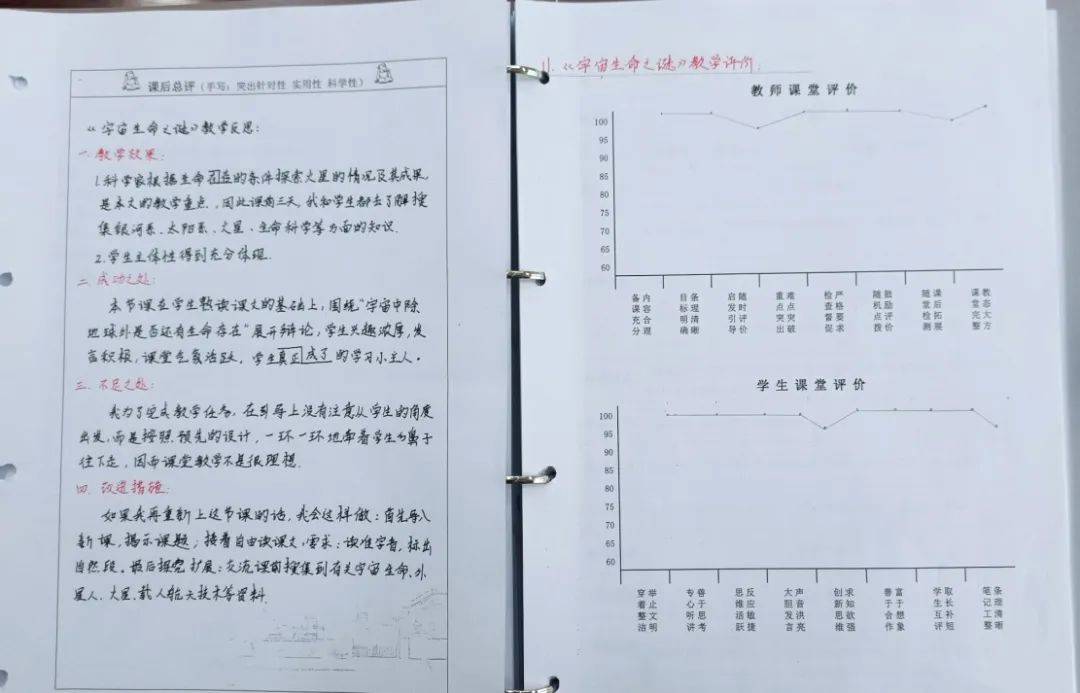 课后总评（手写：突出针对性 实用性 科学性）
《宇宙生命之谜》教学反思：
一. 教学效果：
1.科学家根据生命存在的条件探索火星的情况及其成果，
是本文的教学重点，因此课前三天，我和学生都去了解搜
集银河系、太阳系、火星、生命科学等方面的知识.
2.学生主体性得到充分体现.
二. 成功之处：
本节课在学生熟读课文的基础上，围绕"宇宙中除
地球外是否还有生命存在"展开辩论，学生兴趣浓厚，发
言积极，课堂气氛活跃，学生真正成了的学习小主人。
三. 不足之处：
我为了完成教学任务，在引导上没有注意从学生的角度
出发，而是按照预先的设计，一环一环地牵着学生的鼻子
往下走，因而课堂教学不是很理想.
四. 改进措施：
如果我再重新上这节课的话，我会这样做：首先导入
新课，揭示课题；接着自由读课文，要求：读准字音，标出
自然段。最后探究扩展：交流课前搜集到有关宇宙生命、外
星人、火星、载人航天技术等资料.
11.《宇宙生命之谜》教学评价：
教师课堂评价
100
95
90
85
80
75
70
65
60
备课充分 内容合理
目标明确 条理清晰
启发引导 随时评价
重点突出 难点突破
检查督促 严格要求
随机点拨 鼓励评价
随堂检测 课后拓展
课堂完整 教态大方
学生课堂评价
100
95
90
85
80
75
70
65
60
穿着整洁 举止文明
专心听讲 善于思考
思维活跃 反应敏捷
大胆发言 声音洪亮
创新思维 求知欲强
善于合作 富于想象
学生互评 取长补短
笔记工整 条理清晰